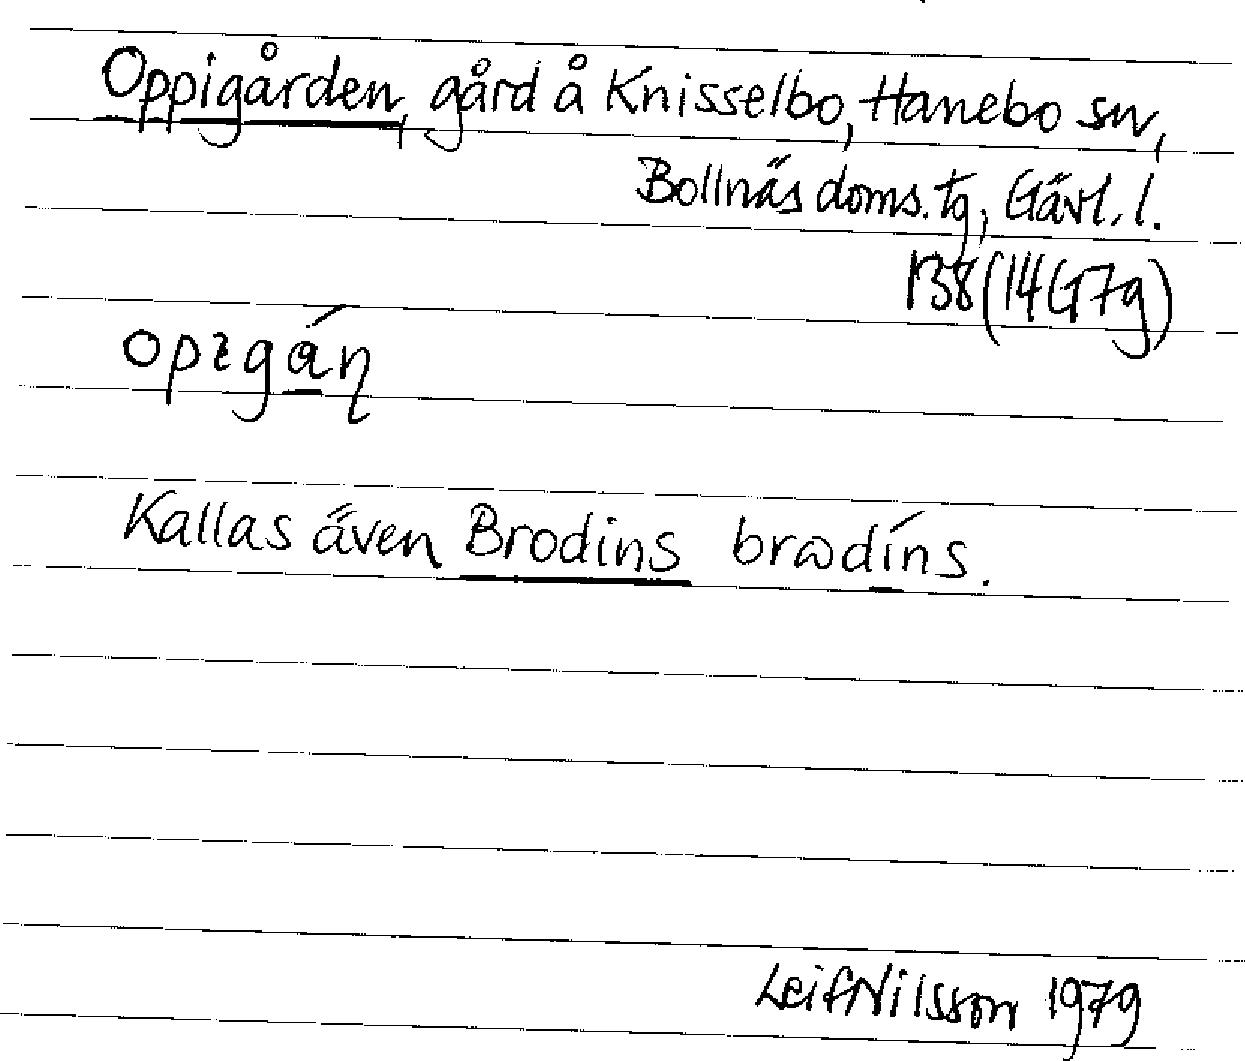 Oppigården, gård å Knisselbo, Hanebo sn,
Bollnäs doms. tg, Gävl. l.
138 (14G7g)
Kallas även Brodins brωdíns.
Leif Nilsson 1979